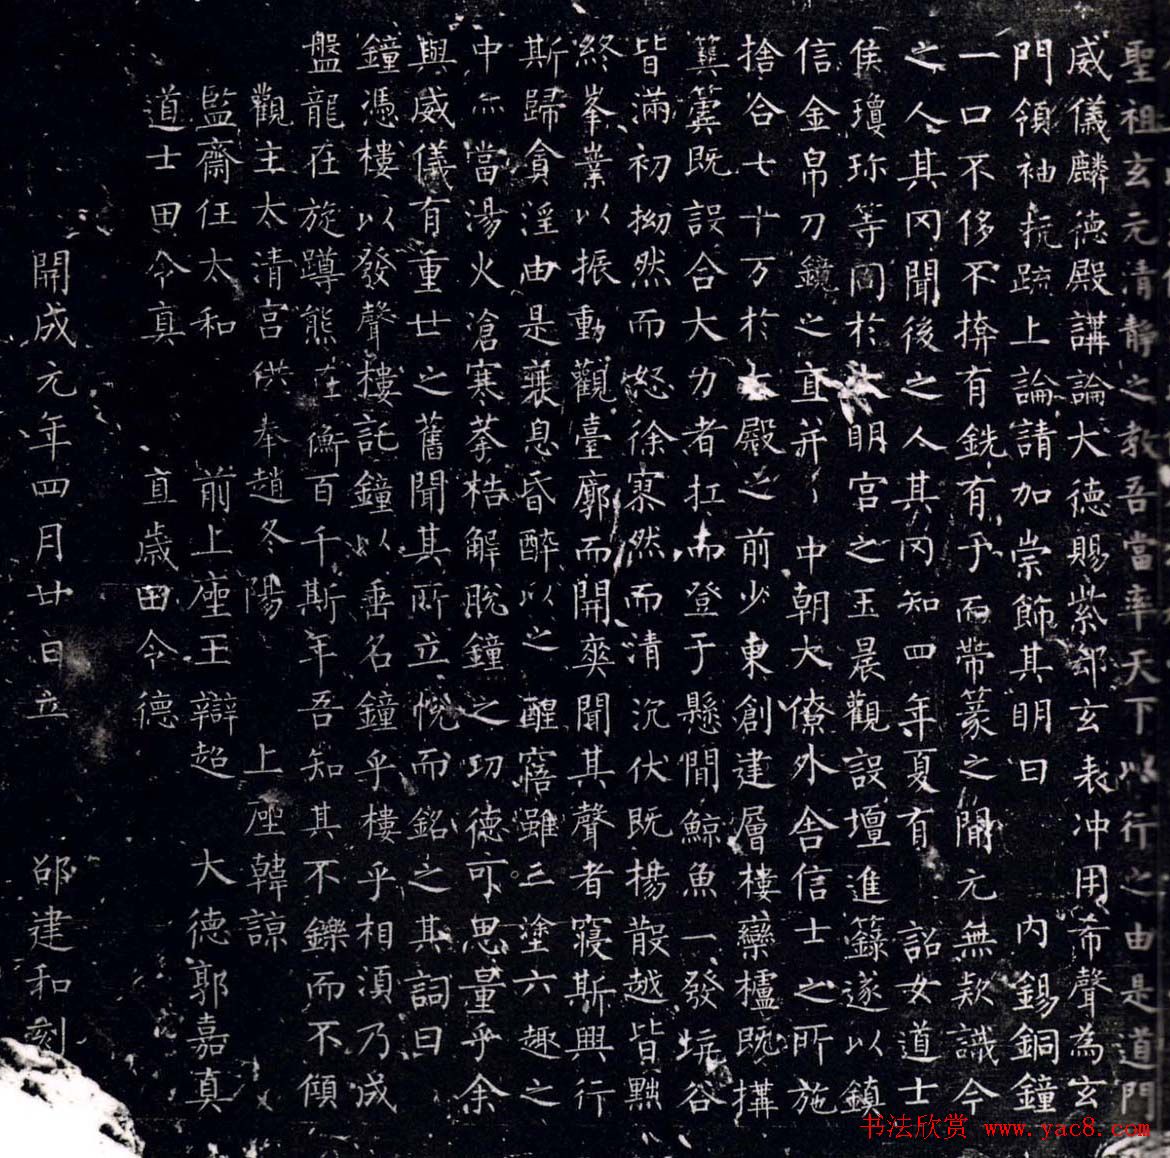 聖祖玄元清靜之教吾當率天下以行之由是道門
威儀麟德殿講論大德賜紫郄玄表冲用希聲為玄
門領袖抗疏上論請加崇飾其明日 内錫銅鐘
一口不侈不揜有銑有于而帶篆之間元無款識今
之人其罔聞後之人其罔知四年夏有 詔女道士
侯瓊珎等同於大明宮之玉晨觀設壇進籙遂以鎮
信金帛刀鏡之直并中朝大僚外舍信士之所施
捨合七十万於大殿之前少東創建層樓欒櫨既構
簨簴既設合大力者扛而登于懸間鯨魚一發坑谷
皆滿初拗然而怒徐寥然而清沉伏既楊散越皆黜
終峯業以振動觀臺廓而開爽聞其聲者寢斯興行
斯歸貪淫由是衰息昏醉以之醒寤雖三塗六趣之
中亦當湯火滄寒拲梏解脫鐘之功德可思量乎余
與威儀有重世之舊聞其所立悅而銘之其詞曰
鐘憑樓以發聲樓託鐘以垂名鐘乎樓乎相須乃成
盤龍在旋蹲熊在衡百千斯年吾知其不鑠而不傾
觀主太清宮供奉趙冬陽 上座韓諒
監齋任太和 前上座王辯超 大德郭嘉真
道士田令真 直歲田令德
開成元年四月廿日立 邵建和刻
书法欣赏 www.yac8.com